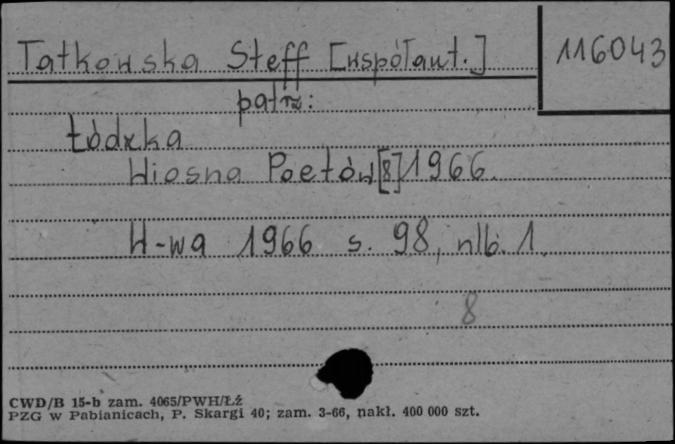 Tatkowska Steff [współaut.] 116043
patrz:
Łódzka
Wiosna Poetów [8] 1966.
W-wa 1966 s. 98, nlb. 1.
8
CWD/B 15-b zam. 4065/PWH/Łź
PZG w Pabianicach, P. Skargi 40; zam. 3-66, nakł. 400 000 szt.